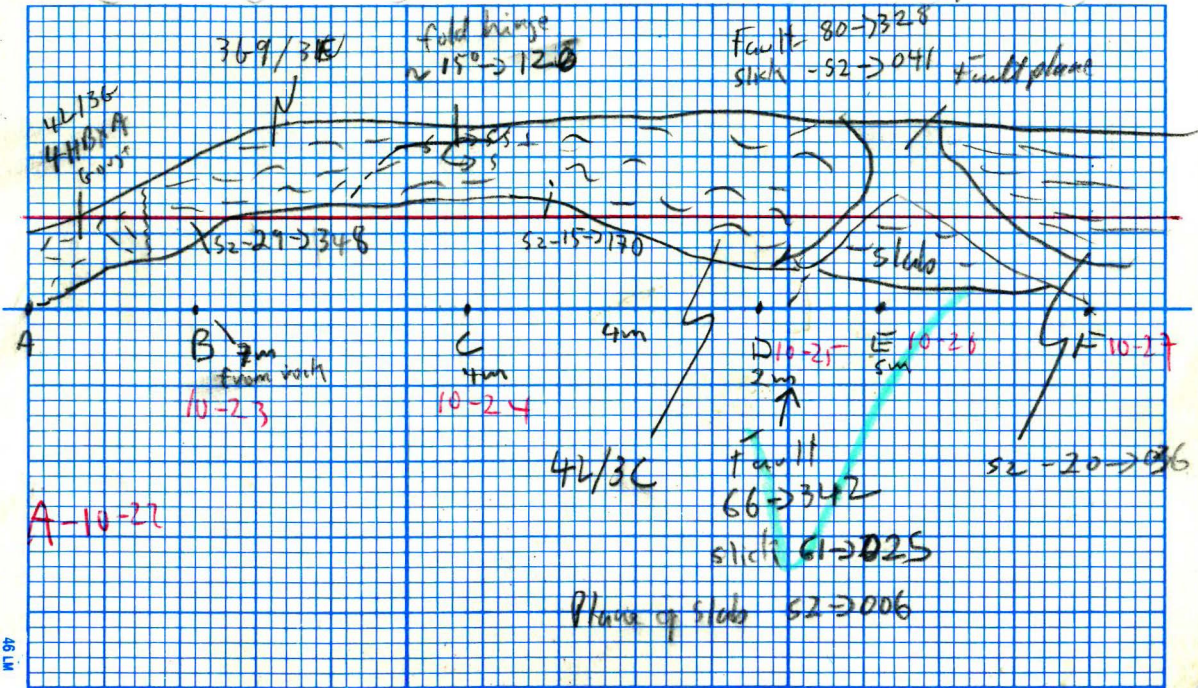 369/3E
fold hinge
~ 15°->126
Fault - 80->328
slick - 52->041
Fault plane
4L/3G
4HBXA
Gouge
S
S
S2-29->348
S2-15->170
slab
A
B
7m
from rock
10-23
C
4m
10-24
4m
D 10-25
2m
E 10-26
5m
F 10-27
4L/3C
Fault
66->342
slick 61->025
S2-20->036
A-10-22
Plane of slab 52->006
46 LM